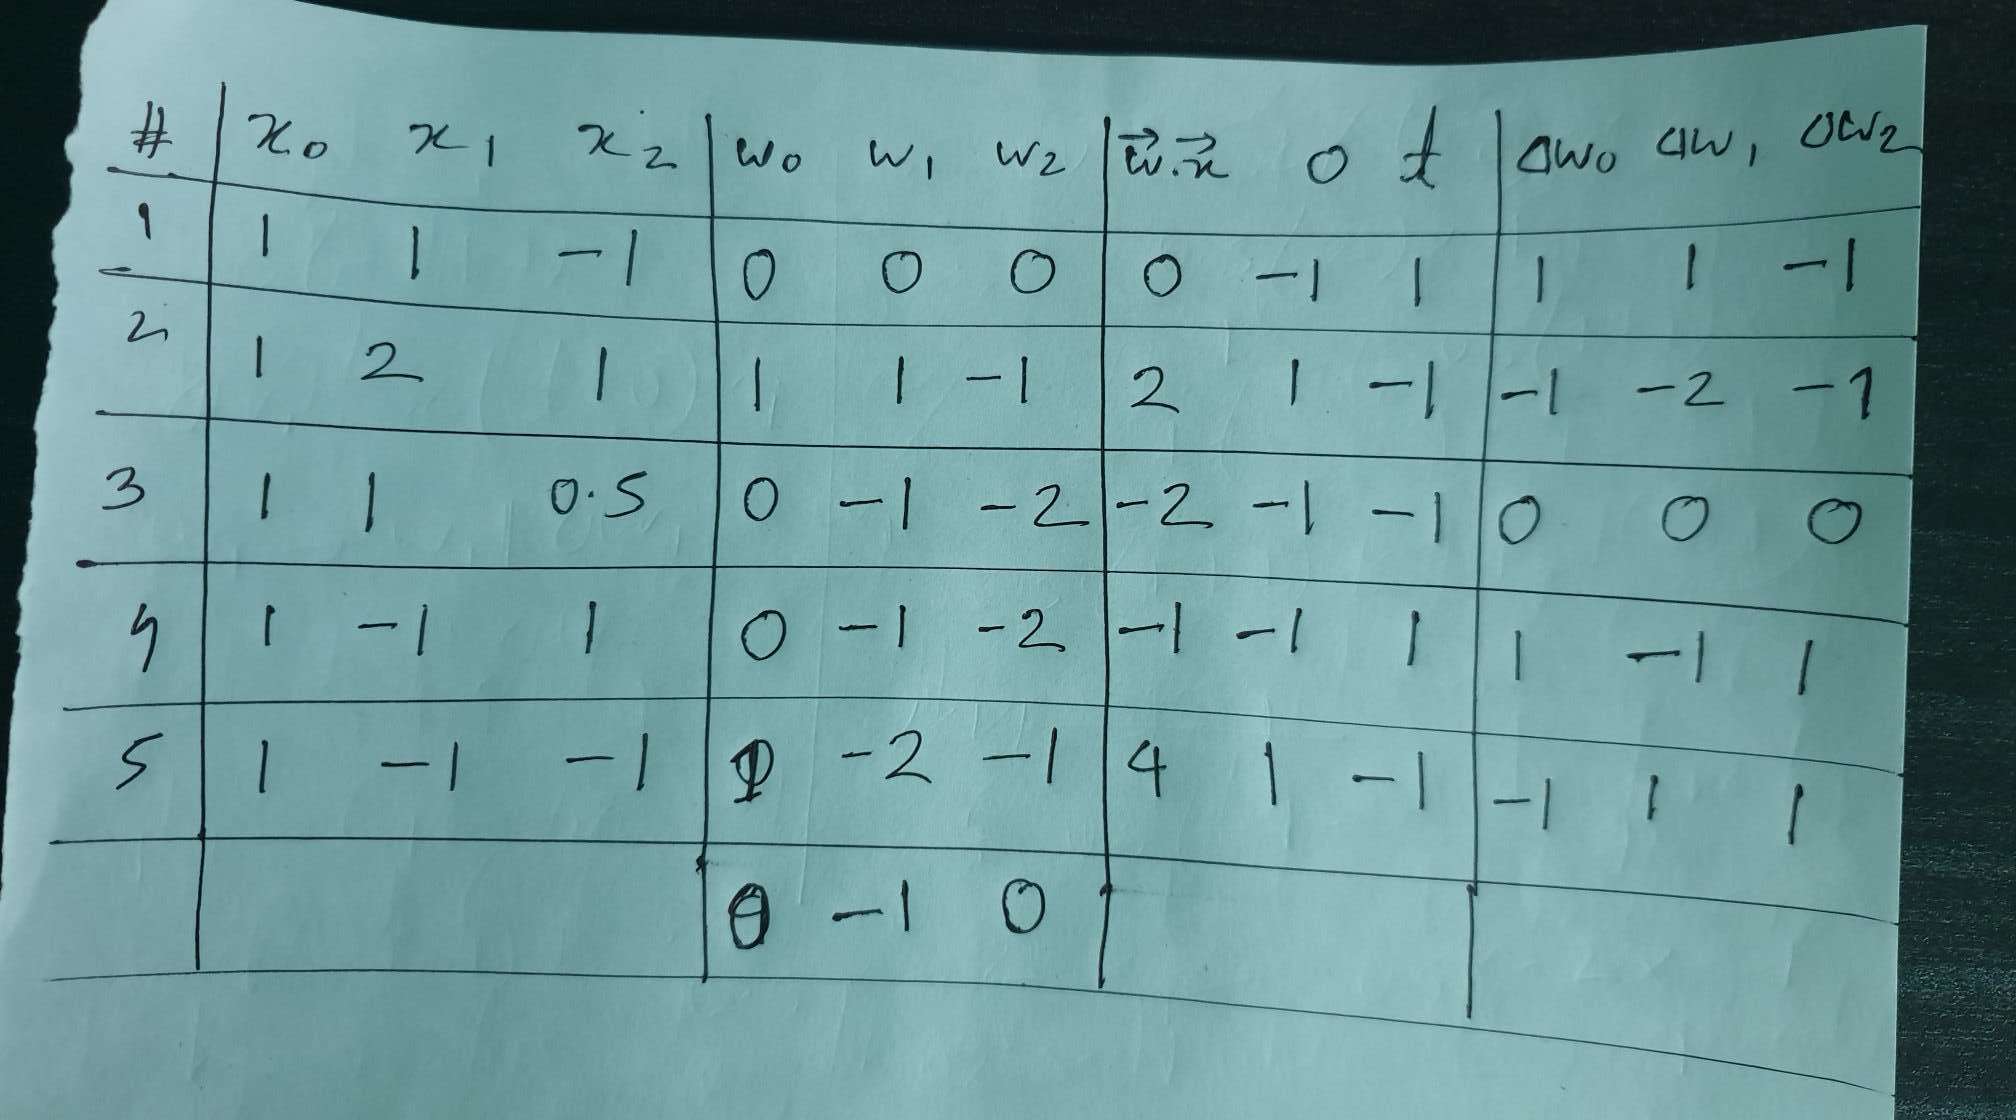 # x₀ x₁ x₂ w₀ w₁ w₂ w⃗.x⃗ o t Δw₀ Δw₁ Δw₂
1 1 1 -1 0 0 0 0 -1 1 1 1 -1
2 1 2 1 1 1 -1 2 1 -1 -1 -2 -1
3 1 1 0.5 0 -1 -2 -2 -1 -1 0 0 0
4 1 -1 1 0 -1 -2 -1 -1 1 1 -1 1
5 1 -1 -1 1 -2 -1 4 1 -1 -1 1 1
0 -1 0